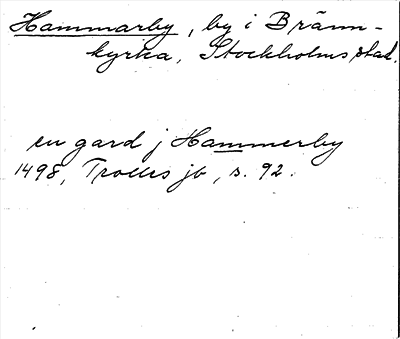 Hammarby, by i Bränn-
kyrka, Stockholms stad.
en gard j Hammerby
1498, Trolles jb, s. 92.